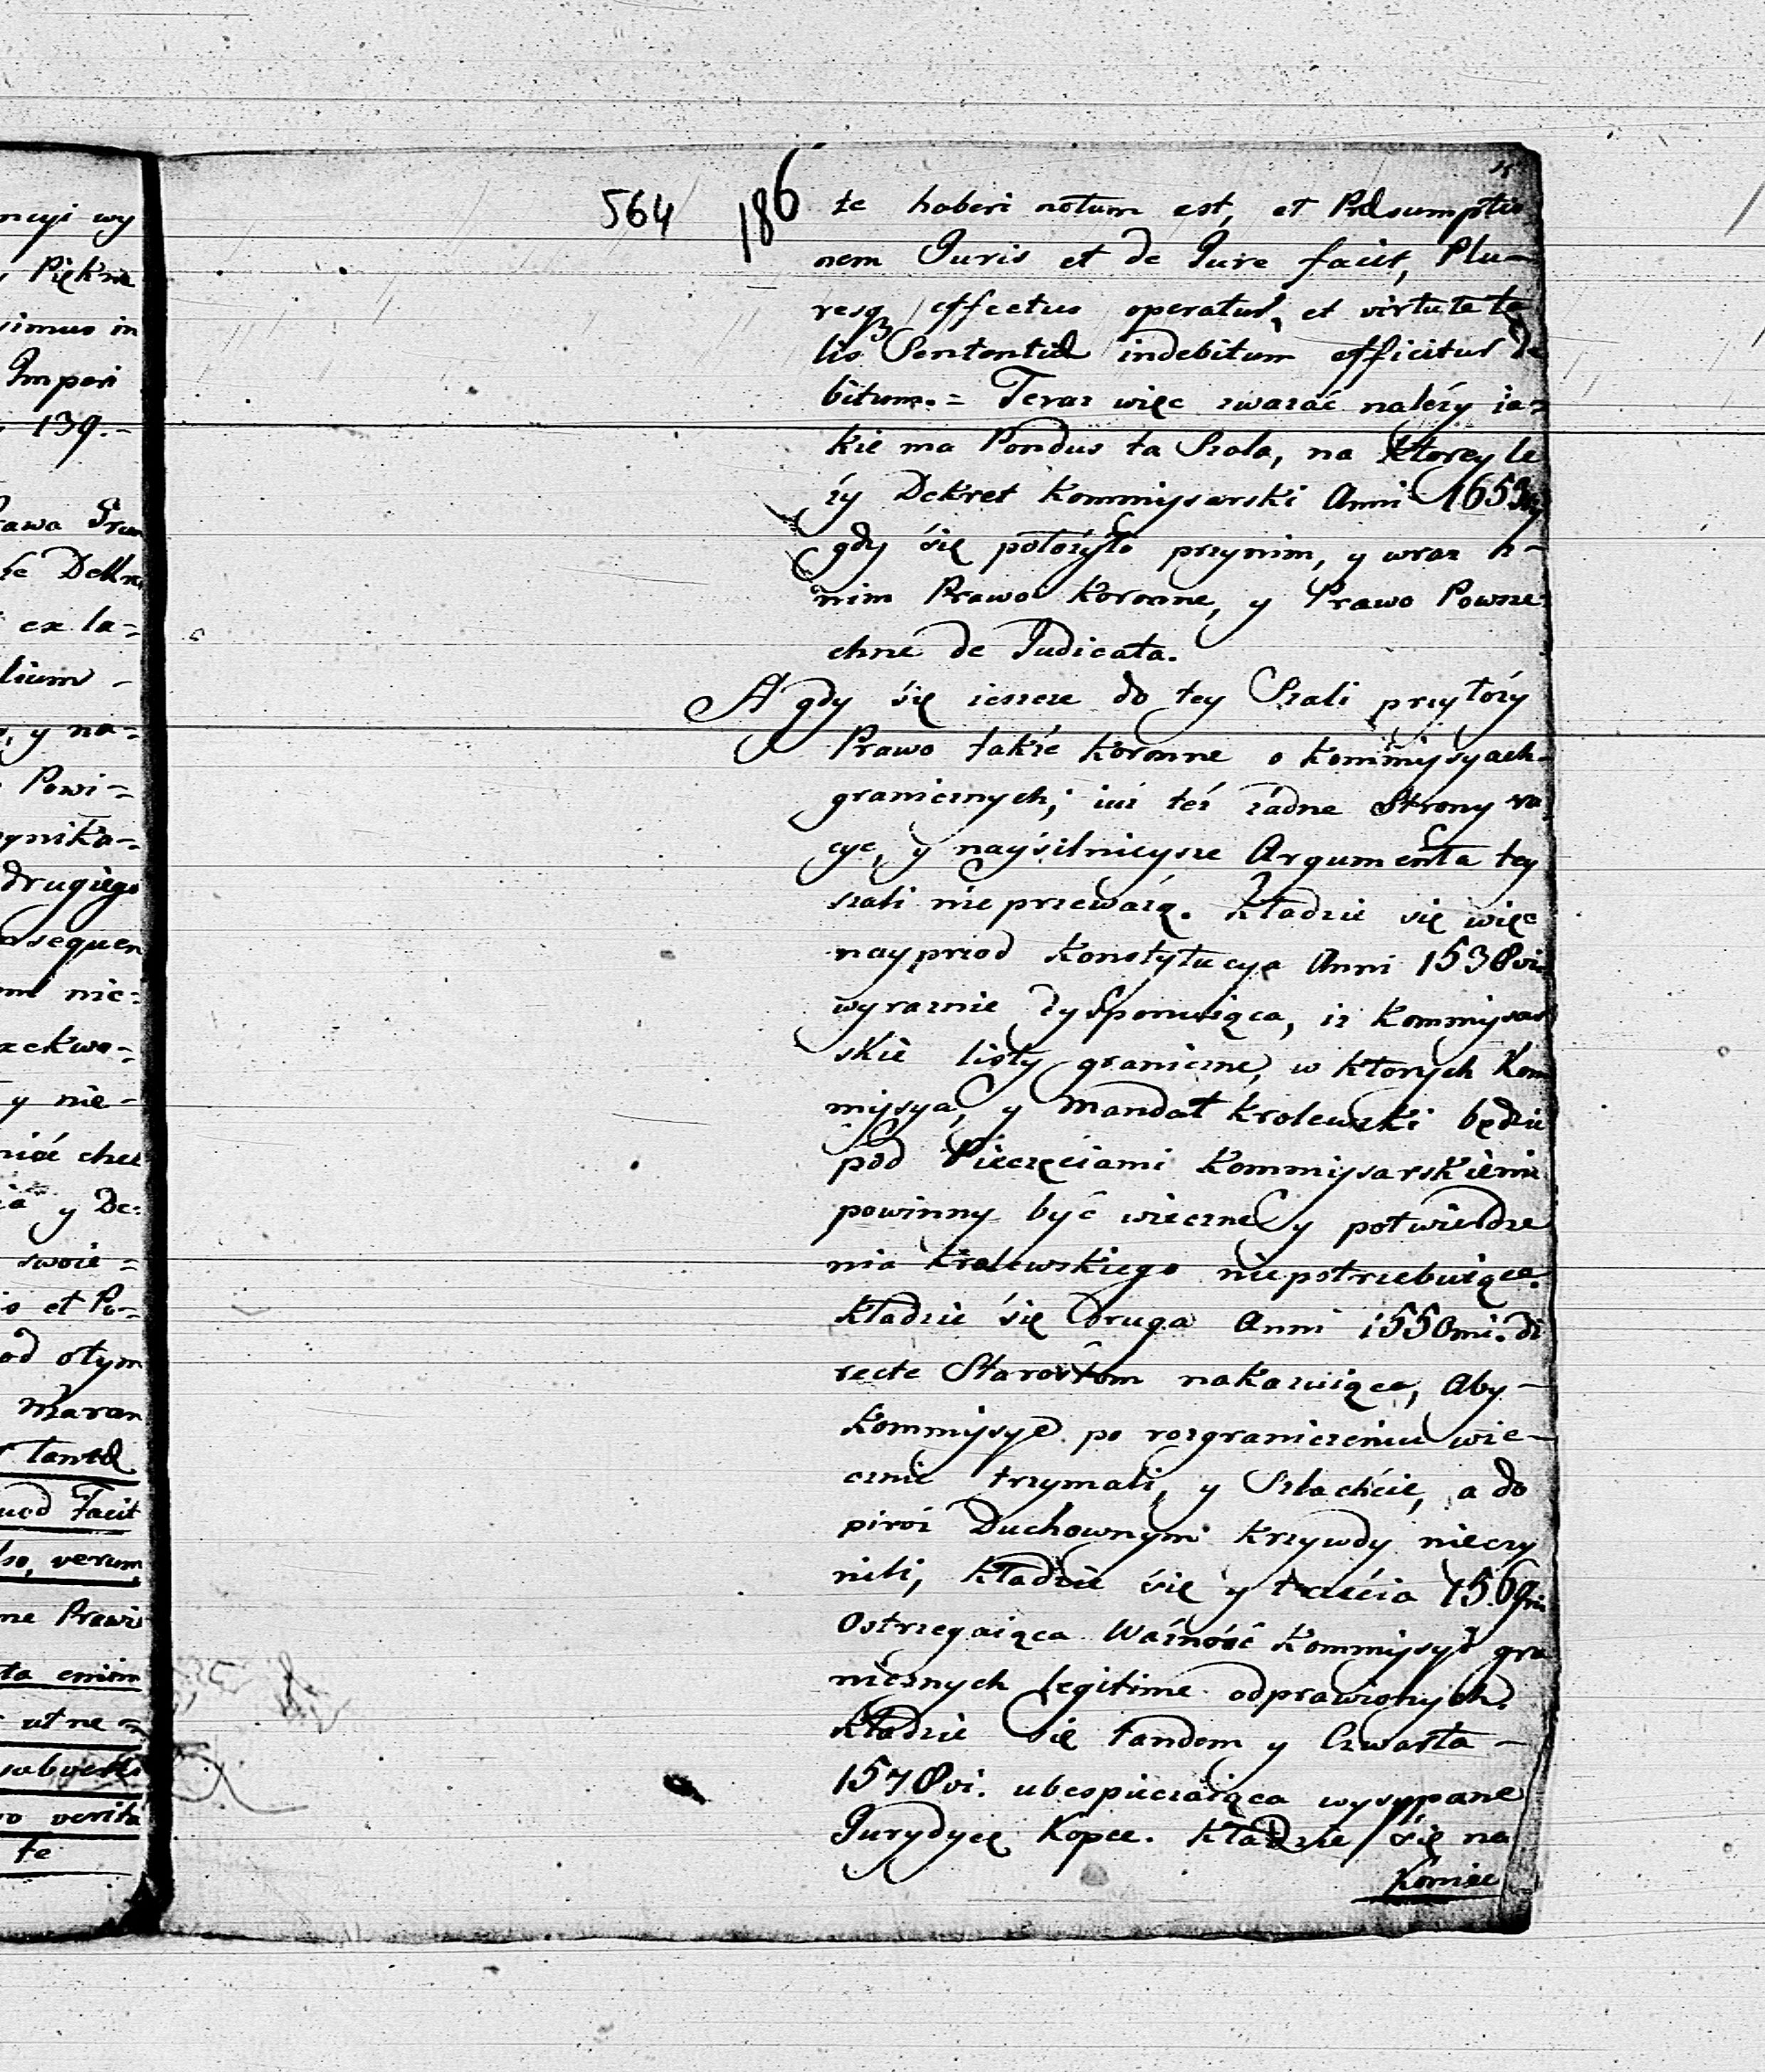 ncyi wy
Piękne
simus in
Imperi
139.-
Prawa Gran
że Dekre
ex la-
lium -
y na-
Powi-
gnika-
drugiego
nsequen
nie-
zekwo-
y nie-
nić chce
ia y De-
swoie-
is et Po-
od otym
Maran
tantæ
uod Facit
lso, verum
ne Prawi
ta enim
ut ne-
subverti
ro verita
te
564 186
te haberi notum est, et Præsumptio
nem Juris et de Jure facit, Plu-
resq effectus operatur, et virtute ta
lis Sententiæ indebitum efficitur de
bitum.= Teraz więc zwazać należy ia=
kie ma Pondus ta Szala, na ktorey le
zy Dekret Kommissarski Anni 1653tij
gdy się położyło przynim, y wraz z-
nim Prawo Koronne, y Prawo Powsze
chne de Judicata.
A gdy się ieszcze do tey Szali przyłozy
Prawo także Koronne o Kommissyach
granicznych; iuż też żadne Strony ra
cye, y naysilnieysze Argumenta tey
szali nieprzeważą. Kładzie się więc
nayprzod Konstytucya Anni 1538vi
wyraznie dysponuiąca, iz Kommissar
skie listy graniczne, w ktorych Kom
missya, y Mandat Krolewski będzie
pod Pieczęciami Kommissarskiemi
powinny być wieczne y potwierdze
nia Krolewskiego niepotrzebuiące.
Kładzie się druga Anni 1550mi. di
recte Starostom nakazuiąca, Aby-
Kommissye po rozgraniczeniu wie-
cznie trzymali, y Szlachcie, a do
piroż Duchownym Krzywdy nieczy
nili, Kładzie się y trzecia 1569ni
Ostrzegaiąca Ważność Kommissyi gra
nicznych legitime odprawionych.
Kładzie się tandem y Czwarta-
1578vi. ubespieczaiąca wysypane
Jurydycę Kopce. Kładzie się na
Koniec